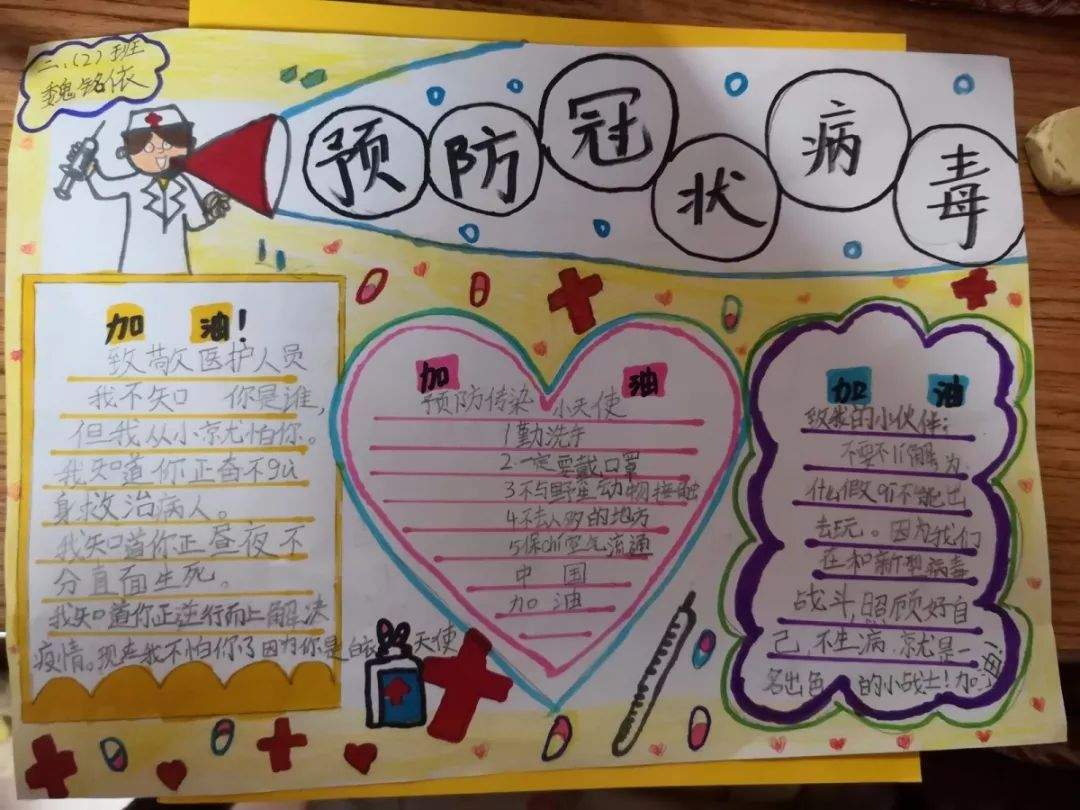 三、(2)班
魏铭依
预防冠状病毒
加油!
致敬医护人员
我不知 你是谁,
但我从小京尤怕你。
我知道你正奋不gù
身救治病人。
我知道你正昼夜不
分直面生死。
我知道你正逆行而上解决
疫情。现在我不怕你了因为你是白衣天使
加油
预防传染 小天使
1勤洗手
2.一定要戴口罩
3不与野生动物接触
4不去人多的地方
5保chí空气流通
中国
加油
加油
致我的小伙伴:
不要不lǐ解为
什么假qī不能出
去玩。因为我们
在和新型病毒
战斗,照顾好自
己,不生病,京尤是一
名出色 的小战士!加油!